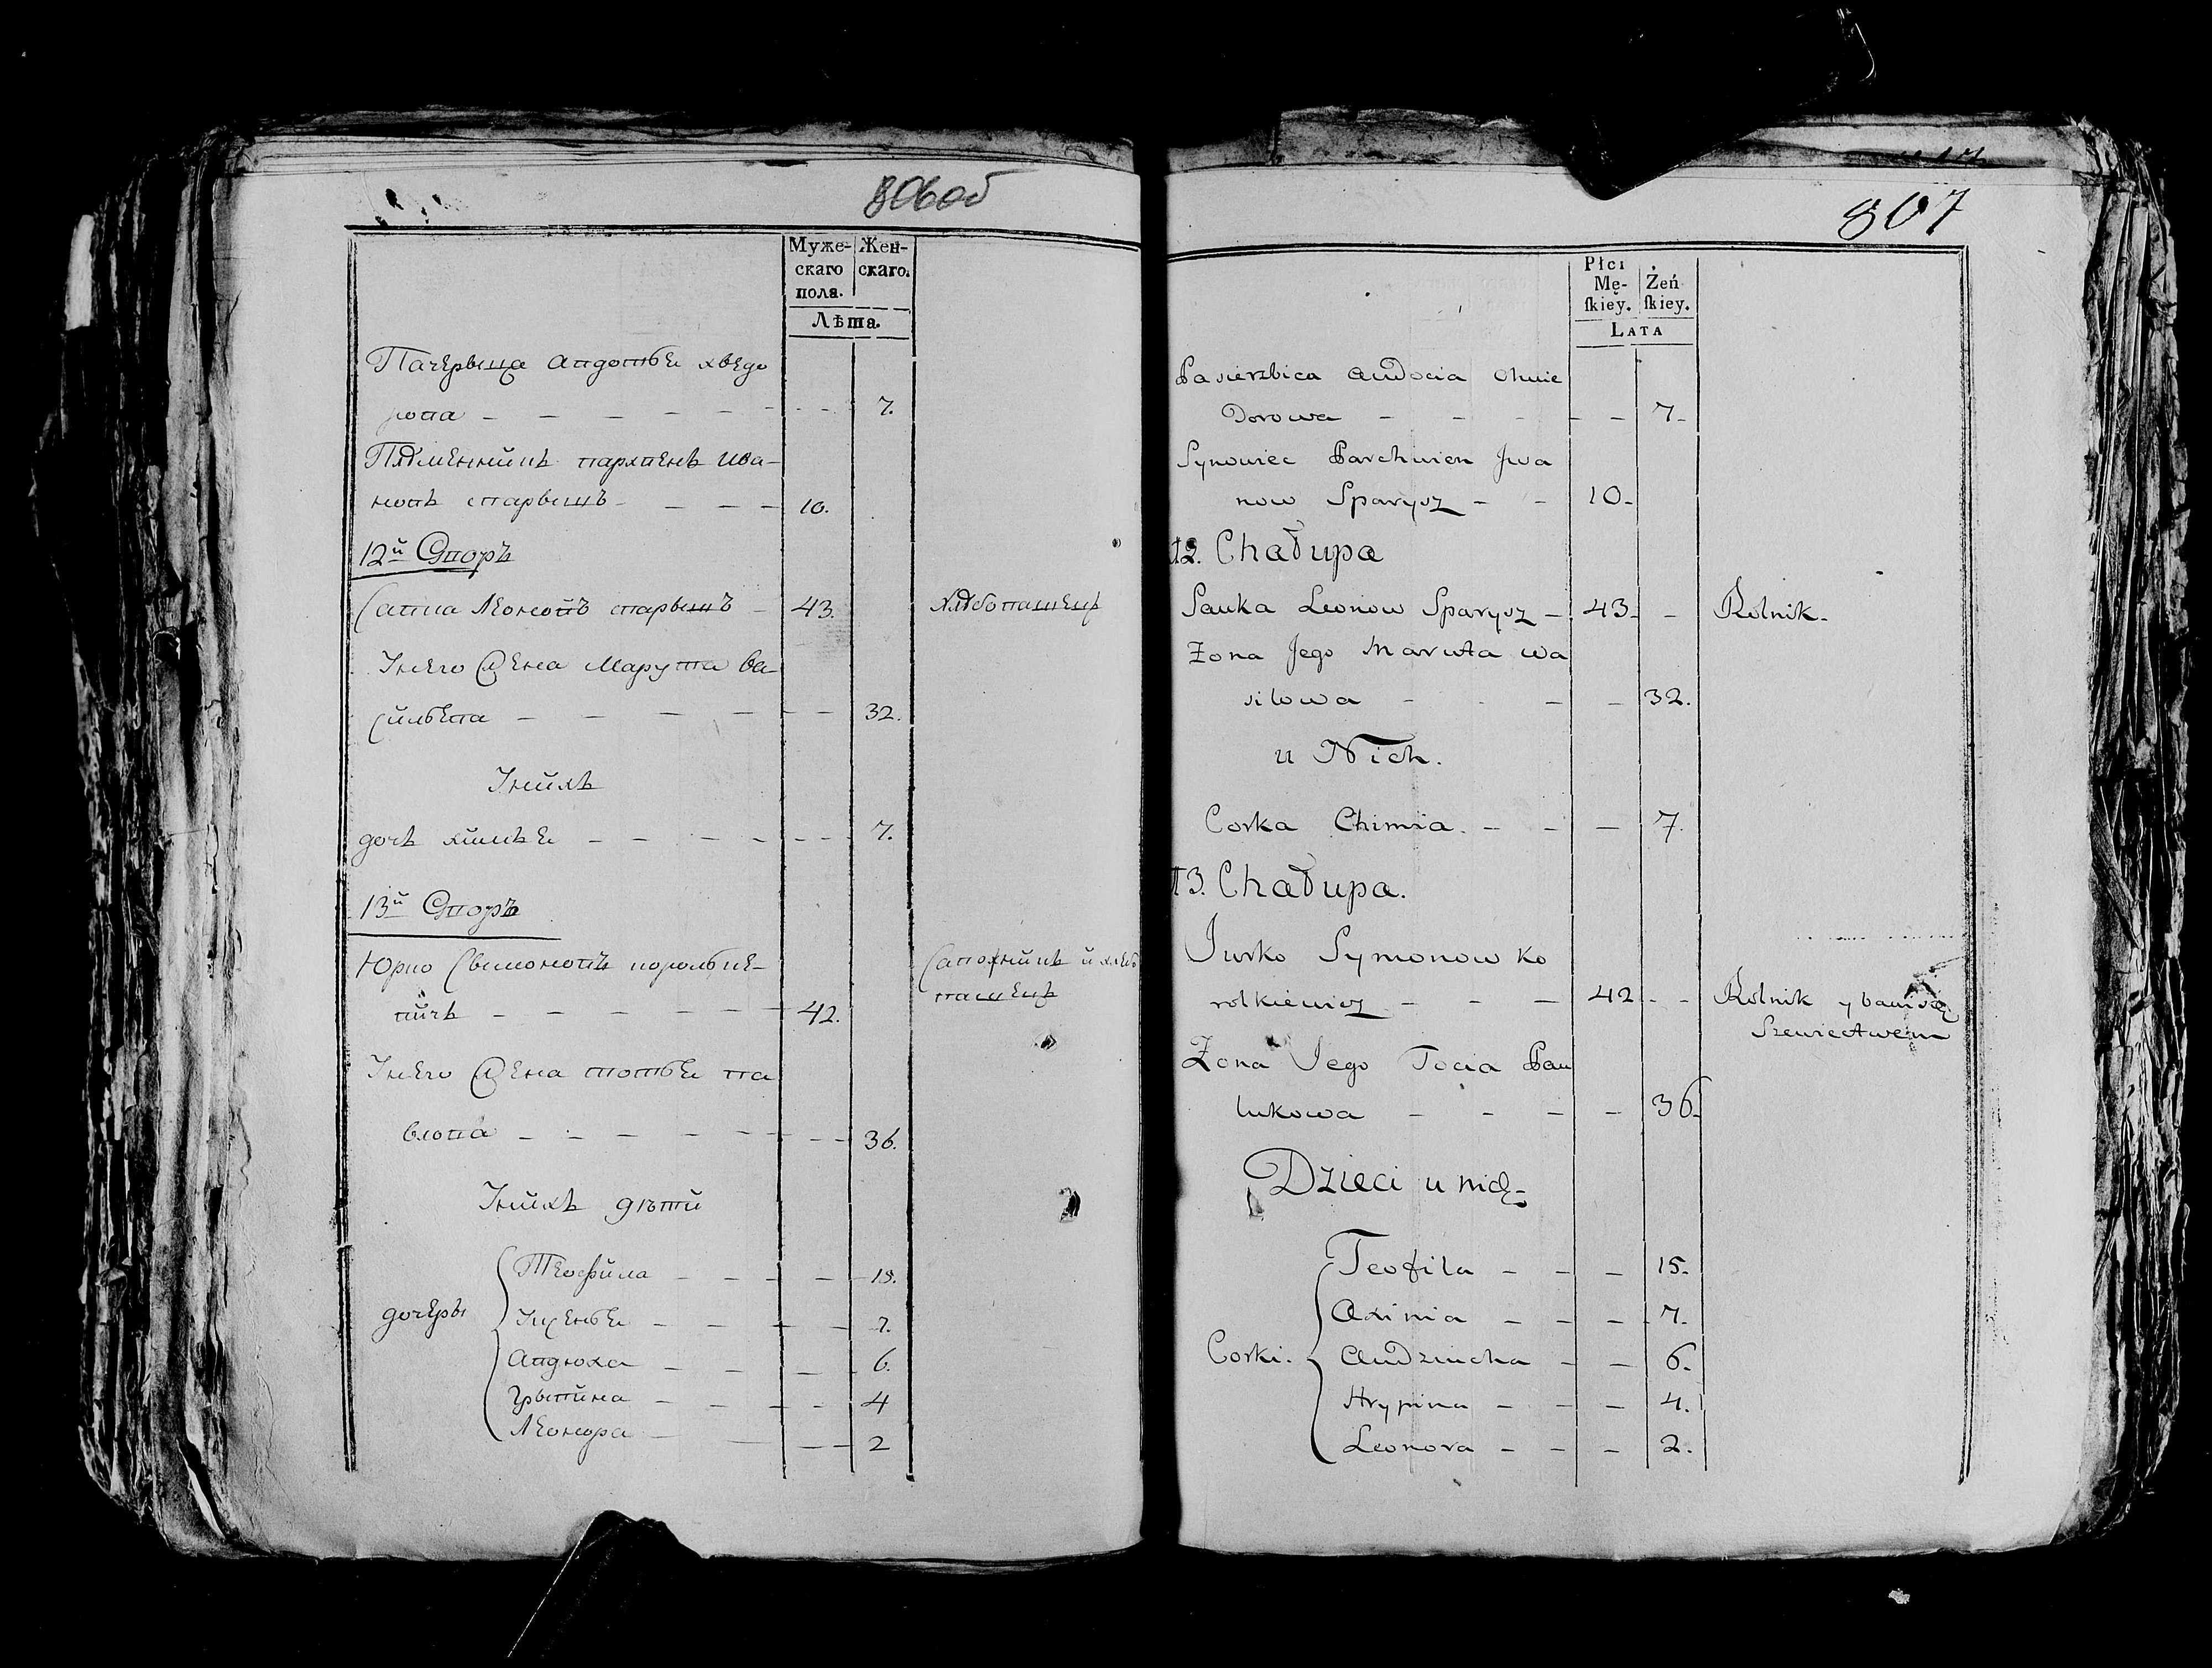 806об
Муже-
скаго
пола.
Жен-
скаго.
Лѣта.
Пачерыца Авдотья хведо
рова - - - - - - 7.
Плѣменникъ пархвенъ ива-
новъ спарышъ - - - - 10.
12й Дворъ
Савка Леоновъ спарышъ - 43. хлѣбопашецъ
Унего Жена Марута ва-
сильева - - - - - - 32.
Унихъ
дочь химья - - - - - - 7.
13й Дворъ
Юрко Сымоновъ королькѣ-
вичъ - - - - - - 42.
Сапожникъ и хлеб
пашецъ
Унего Жена тотья па
влова - - - - - - 36.
Унихъ дѣти
дочеры
Теофила - - - - 15.
Аксенья - - - - 7.
Авдюха - - - - 6.
Грыпина - - - - 4
Леонора - - - - 2
807
Płci
Mę-
ſkiey.
Żeń
ſkiey.
LATA
Pasierzbica Audocia Chwie
dorowa - - - - - 7-
Synowiec Parchwien Jwa
now Sparysz - - 10-
12. Chałupa
Sauka Leonow Sparysz - 43- - Rolnik-
Żona Jego Maruta wa
silowa - - - - 32.
u Nich.
Corka Chimia. - - - 7.
13. Chałupa.
Jurko Symonow Ko
rolkiewicz - - - 42 - - Rolnik y bawi się
Szewiectwem
Żona Jego Tocia Pau
lukowa - - - - 36-
Dzieci u nich-
Corki.
Teofila - - - 15-
Axinia - - - 7-
Audziucha - - 6-
Hrypina - - - 4.
Leonora - - - 2.